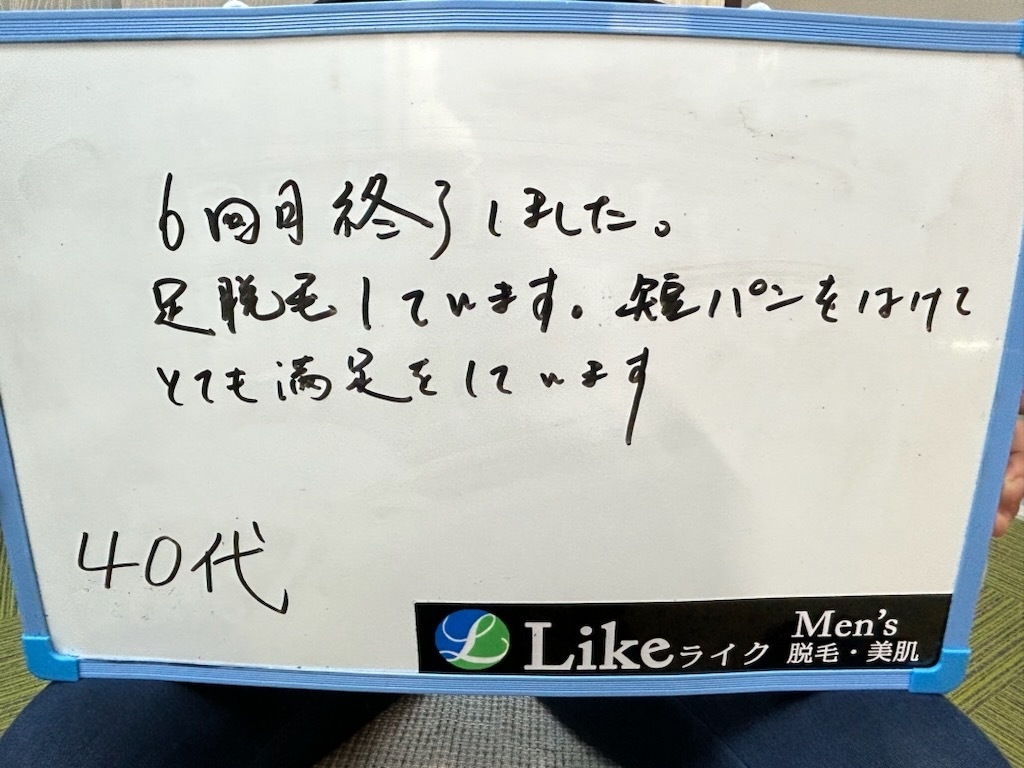 6回目終了しました。
足脱毛しています。短パンをはけて
とても満足をしています
40代
Likeライク
Men's
脱毛・美肌